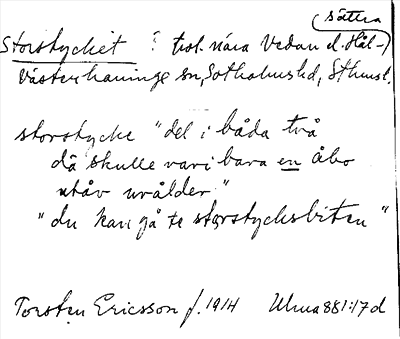 sättra
Storstycket ? trol. nära Vedan el. Hål-
Västerhaninge sn, Sotholms hd, Sthmsl.
storstycke "del i båda två
då skulle vari bara en åbo
utåv urålder"
"du kan gå te storstycksbiten"
Torsten Ericsson f. 1914 Uma 881:17 d